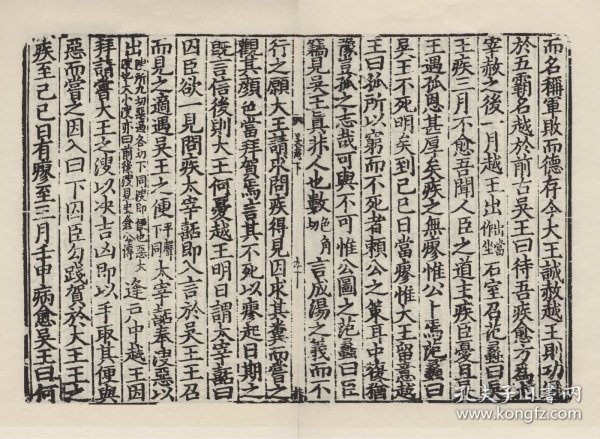 而名稱軍敗而德存今大王誠赦越王則功
於五霸名越於前古吳王曰待吾疾愈方爲
宰赦之後一月越王出出當作坐石室召范蠡曰吳
王疾三月不愈吾聞人臣之道主疾臣憂且吳
王遇孤恩甚厚矣疾之無瘳惟公卜焉范蠡曰
吳王不死明矣到己巳日當瘳惟大王留意越
王曰孤所以窮而不死者賴公之策耳中復猶
豫豈孤之志哉可與不可惟公圖之范蠡曰臣
竊見吳王真非人也數色角切言成湯之義而不
行之願大王請求問疾得見因求其糞而嘗之
觀其顏色當拜賀焉言其不死以瘳起日期之
既言信後則大王何憂越王明日謂太宰嚭曰
囚臣欲一見問疾太宰嚭即入言於吳王王召
而見之適遇吳王之便平聲下同太宰嚭奉溲惡以
出溲所九切惡遏各切下同溲即便也惡大溲也大小溲亦曰前後溲見史倉公傳逢戶中越王因
拜請嘗大王之溲以決吉凶即以手取其便與
惡而嘗之因入曰下囚臣勾踐賀於大王王之
疾至己巳日有瘳至三月壬申病愈吳王曰何
孔夫子旧书网
www.kongfz.com